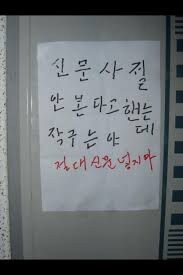 신문사절
안 본다고 핸는데
작구 는야
절대 신문 넣지마